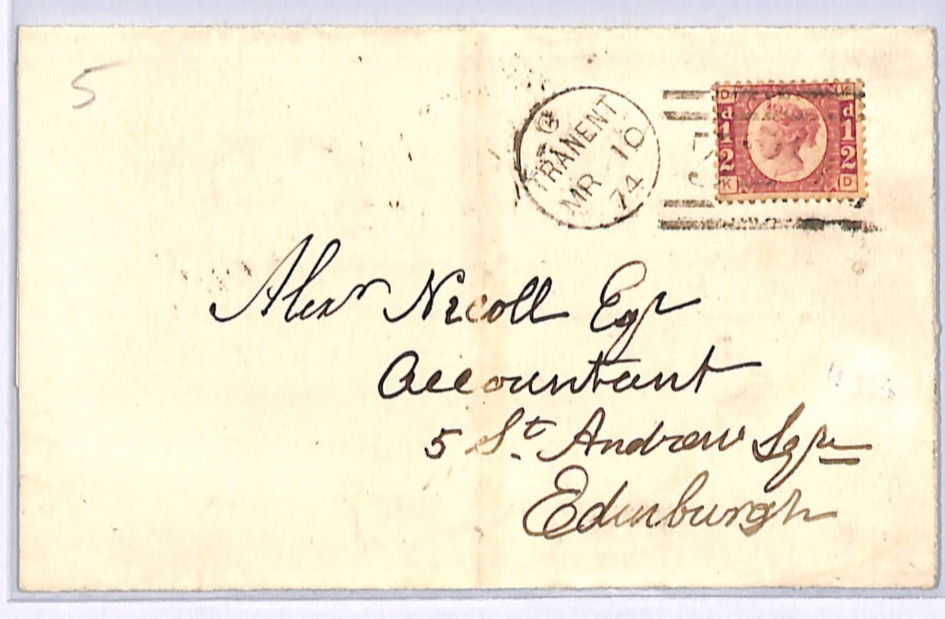 5
TRANENT
MR 10
74
D K
d 1 2 d 1 2
K D
Alexr Nicoll Esqr
Accountant
5 St. Andrew Sqre
Edinburgh